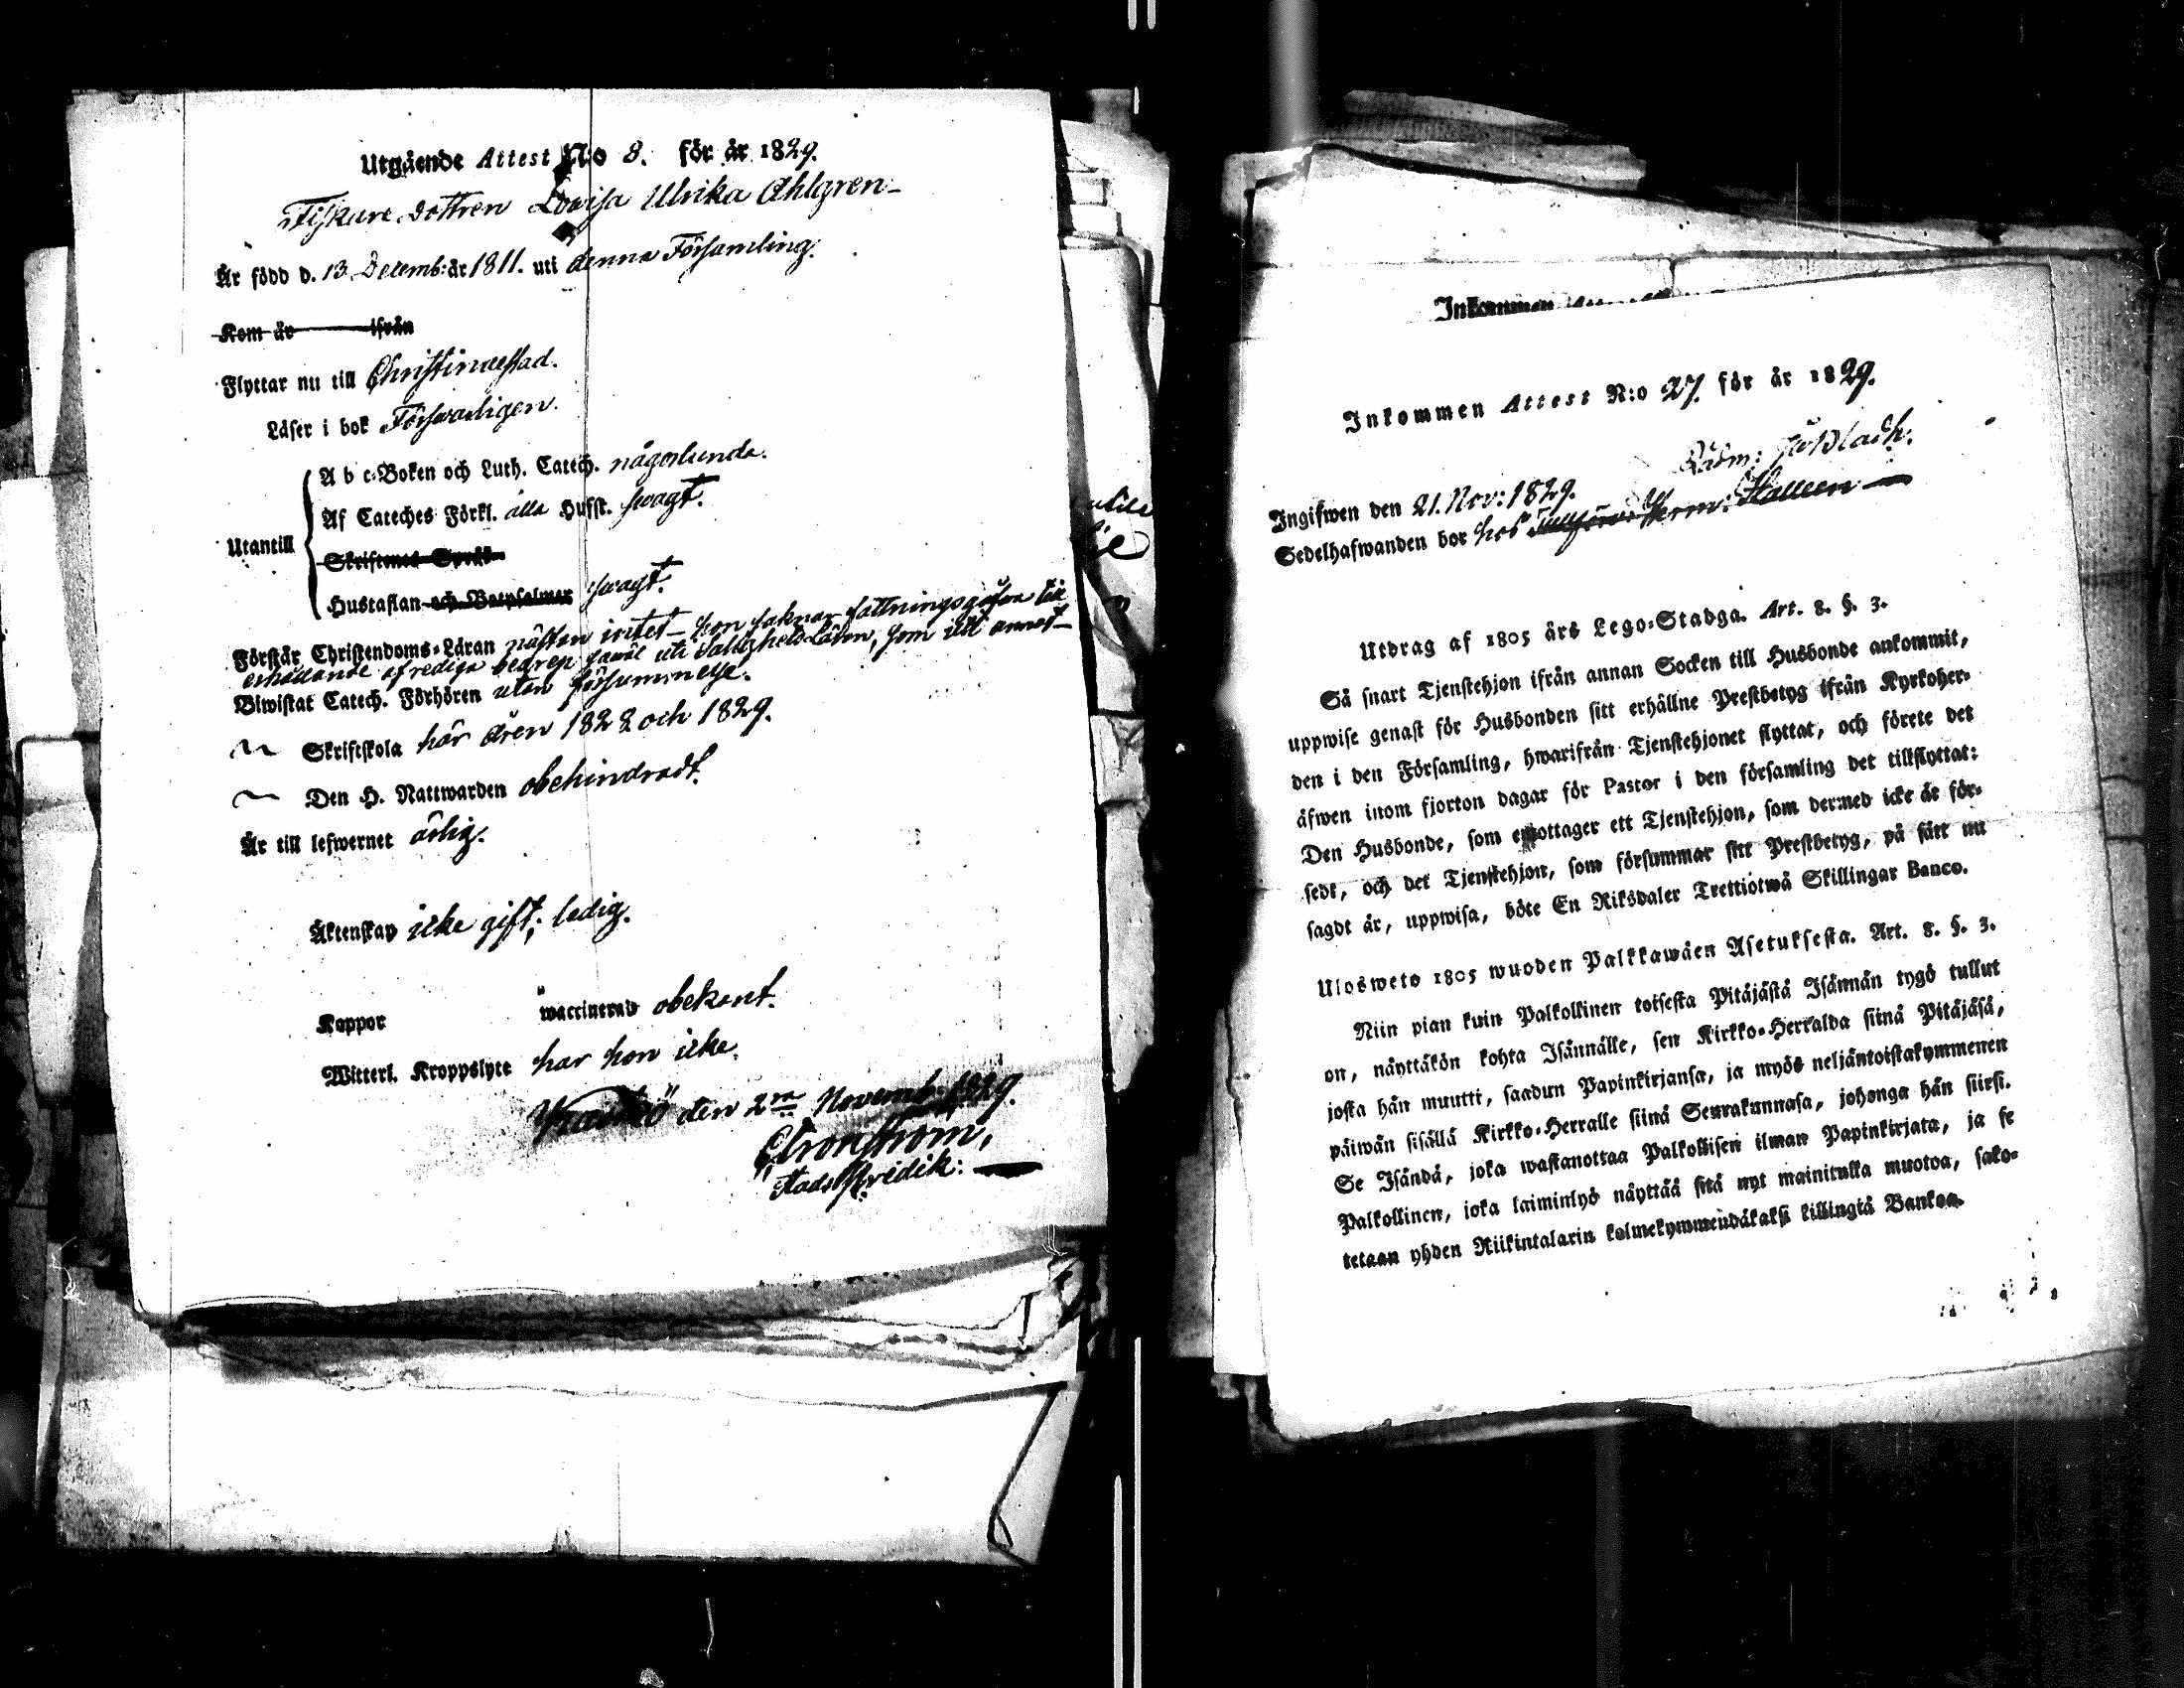 Utgående Attest N:o 8. för år 1829.
Fiskare dottren Lovisa Ulrika Ahlgren
Är född d. 13. Decemb: år 1811. uti denna Församling.
Kom år ifrån
Flyttar nu till Christinaestad.
Läser i bok Försvarligen.
A b c-Boken och Luth. Catech. någorlunda.
Af Cateches Förkl. alla Husst. svagt.
Utantill
Skriftenes Språk
Hustaflan och Botpsalmer svagt.
Förstår Christendoms-Läran nästan intet – hon saknar fattningsgåfva till
erhållande af rediga begrep såväl uti Salighets Läran, som uti annat –
Biwistat Catech. Förhören utan försummelse.
Skriftskola här åren 1828 och 1829.
Den H. Nattwarden obehindradt.
Är till lefwernet ärlig.
Äktenskap icke gift; ledig.
Koppor waccinerad obekant.
Witterl. Kroppslyte har hon icke.
den 2ra Novemb: 1829.
Cronström,
Stads Predik:
Inkommen
Inkommen Attest N:o 27. för år 1829.
Rådm:
Ingifwen den 21. Nov: 1829.
Sedelhafwanden bor hos
Utdrag af 1805 års Lego-Stadga. Art. 8. §. 3.
Så snart Tjenstehjon ifrån annan Socken till Husbonde ankommit,
uppwise genast för Husbonden sitt erhållne Prestbetyg ifrån Kyrkoher-
den i den Församling, hwarifrån Tjenstehjonet flyttat, och förete det
äfwen inom fjorton dagar för Pastor i den församling det tillflyttat:
Den Husbonde, som emottager ett Tjenstehjon, som dermed icke är för-
sedt, och det Tjenstehjon, som försummar sitt Prestbetyg, på sätt nu
sagdt är, uppwisa, böte En Riksdaler Trettiotwå Skillingar Banco.
Ulosweto 1805 wuoden Palkkawäen Asetuksesta. Art. 8. §. 3.
Niin pian kuin Palkollinen toisesta Pitäjästä Isännän tygö tullut
on, näyttäkön kohta Isännälle, sen Kirkko-Herralda siinä Pitäjäsä,
josta hän muutti, saadun Papinkirjansa, ja myös neljäntoistakymmenen
päiwän sisällä Kirkko-Herralle siinä Seurakunnasa, johonga hän siirsi.
Se Isändä, joka wastanottaa Palkollisen ilman Papinkirjata, ja se
Palkollinen, joka laiminlyö näyttää sitä nyt mainitulla muotoa, sako-
tetaan yhden Riikintalarin kolmekymmendäkaksi killingiä Bankoa.